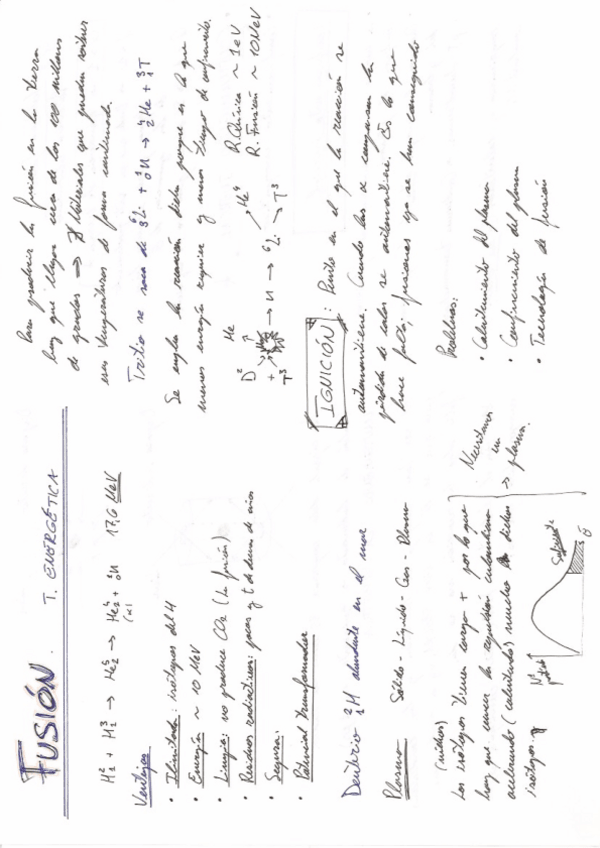 FUSIÓN. T. ENERGÉTICA
H²₁ + H³₁ → He⁵₂ → He⁴₂ + ¹₀n 17,6 MeV
(α)
Ventajas
• Ilimitada: isótopos del H
• Energía ~ 10 MeV
• Limpia: no produce CO₂ (la fusión)
• Residuos radiactivos: pocos y t de decenas de años
• Segura:
• Potencial transformador
Deuterio ²₁H abundante en el mar
Plasma Sólido - Líquido - Gas - Plasma
(núcleos)
Los isótopos tienen carga + por lo que
hay que vencer la repulsión culombiana
acelerando (calentando) mucho dichos
isótopos.
Necesitamos
un
→ plasma.
Nº
Suficiente
Para producir la fusión en la tierra
hay que llegar cerca de los 100 millones
de grados → ∄ Materiales que puedan sufrir
esas temperaturas de forma continuada.
Tritio se saca de ⁶₃Li + ¹₀n → ⁴₂He + ³₁T
Se emplea la reacción dicha porque es la que
menos energía requiere y menos tiempo de confinamiento.
D² He
+ → n → ⁶Li He⁴
T³ T³
R. Química ~ 1eV
R. Fusión ~ 10MeV
IGNICIÓN: Punto en el que la reacción se
automantiene. Cuando las α compensan la
pérdida de calor se automantiene. Es lo que
hace falta; fusiones ya se han conseguido
Problemas:
• Calentamiento del plasma
• Confinamiento del plasma
• Tecnología de fusión